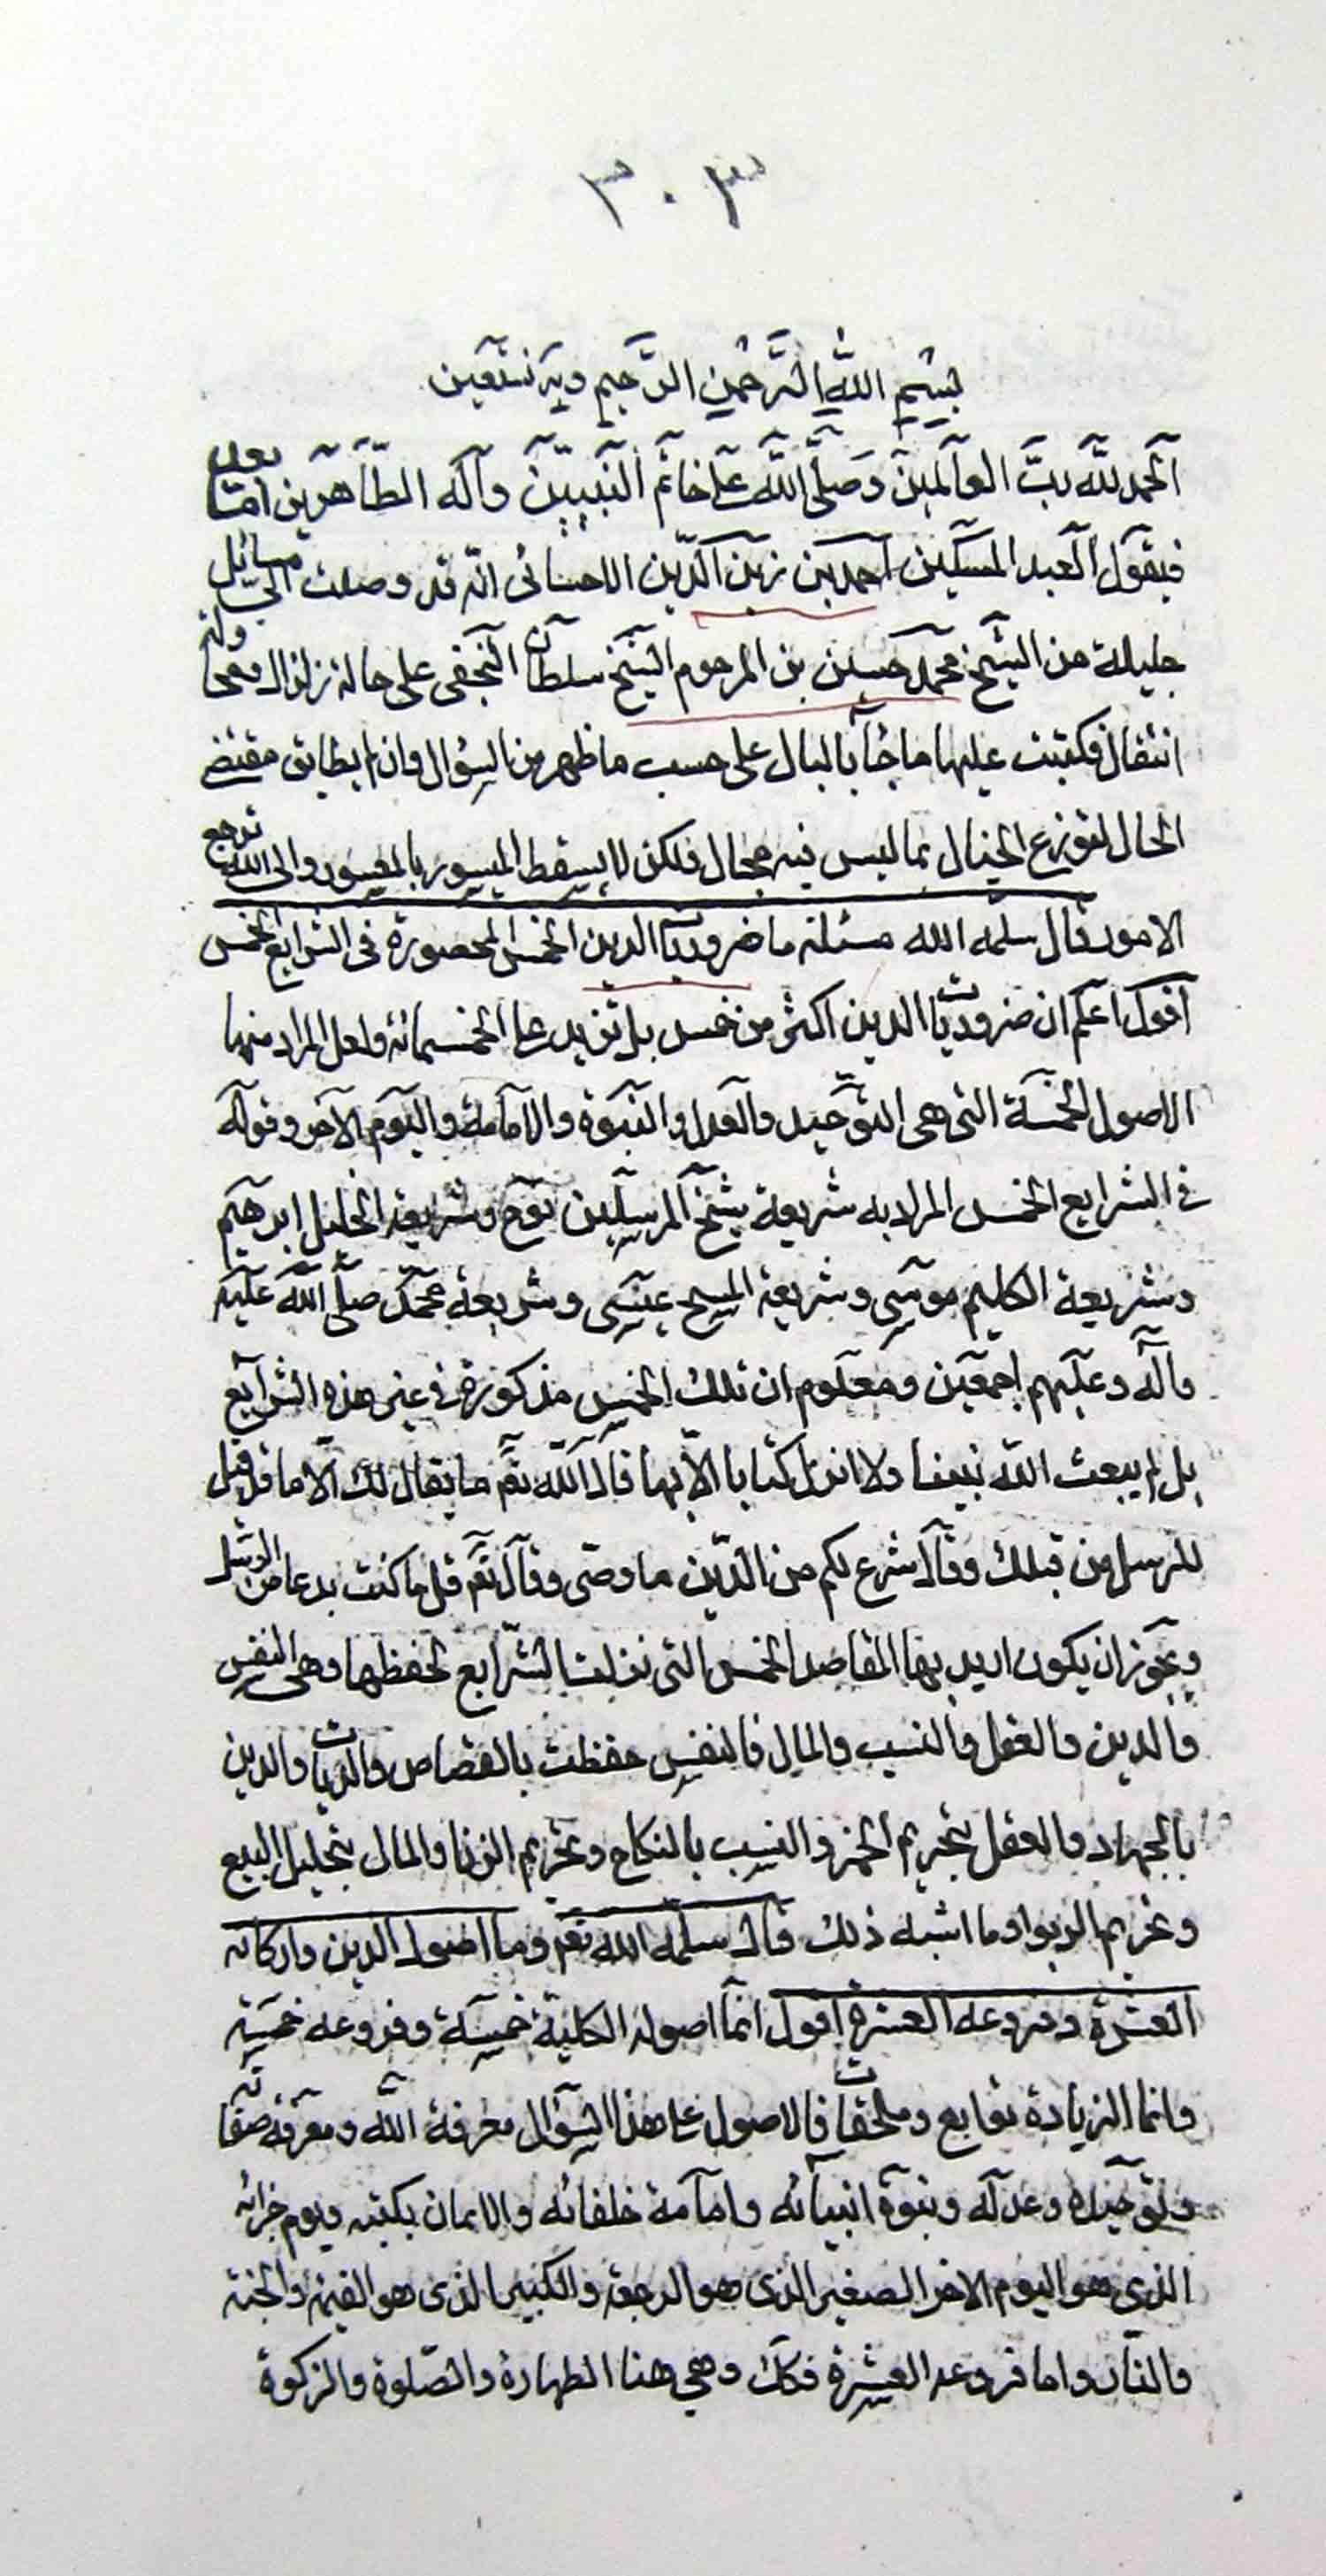 ٣٠٣
بسم الله الرحمن الرحيم وبه نستعين
الحمد لله رب العالمين وصلى الله على خاتم النبيين وآله الطاهرين اما بعد
فيقول العبد المسكين احمد بن زين الدين الاحسائى انه قد وصلت الى مسائل
جليلة من الشيخ محمد حسين بن المرحوم الشيخ سلطان النجفى على حالة زلزال ومحا ولة
انتقال فكتبت عليها ما جاء بالبال على حسب ما ظهر من السؤال وان لم يطابق مقتضى
الحال لتوزع الخيال بما ليس فيه مجال ولكن لا يسقط الميسور بالمعسور والى الله ترجع
الامور قال سلمه الله مسئلة ما ضروريات الدين الخمس المحصورة فى الشرايع الخمس
اقول اعلم ان ضروريات الدين اكثر من خمس بل تزيد على الخمسمائة ولعل المراد منها
الاصول الخمسة التى هى التوحيد والعدل والنبوة والامامة واليوم الآخر وقوله
فى الشرايع الخمس المراد به شريعة شيخ المرسلين نوح وشريعة الخليل ابرهيم
وشريعة الكليم موسى وشريعة المسيح عيسى وشريعة محمد صلى الله عليه
وآله وعليهم اجمعين ومعلوم ان تلك الخمس مذكورة فى غير هذه الشرايع
بل لم يبعث الله نبينا ولا انزل كتابا الا بها قال الله تعم ما يقال لك الا ما قد قيل
للرسل من قبلك وقال شرع لكم من الدين ما وصى وقال تعم قل ما كنت بدعا من الرسل
ويجوز ان يكون اريد بها المقاصد الخمس التى نزلت الشرايع لحفظها وهى النفس
والدين والعقل والنسب والمال فالنفس حفظت بالقصاص والديات والدين
بالجهاد والعقل بتحريم الخمر والنسب بالنكاح وتحريم الزنا والمال بتحليل البيع
وتحريم الربوا وما اشبه ذلك قال سلمه الله تعم وما اصول الدين واركانه
العشرة وفروعه العشرة اقول انما اصوله الكلية خمسة وفروعه خمسة
وانما الزيادة توابع وملحقات فالاصول على هذا السؤال معرفة الله ومعرفة صفاته
وتوحيده وعدله ونبوة انبيائه وامامة خلفائه والايمان بكتبه ويوم جزائه
الذى هو اليوم الاخر الصغير الذى هو الرجعة والكبير الذى هو القيمة والجنة
والنار واما فروعه العشرة فكك وهي هنا الطهارة والصلوة والزكوة